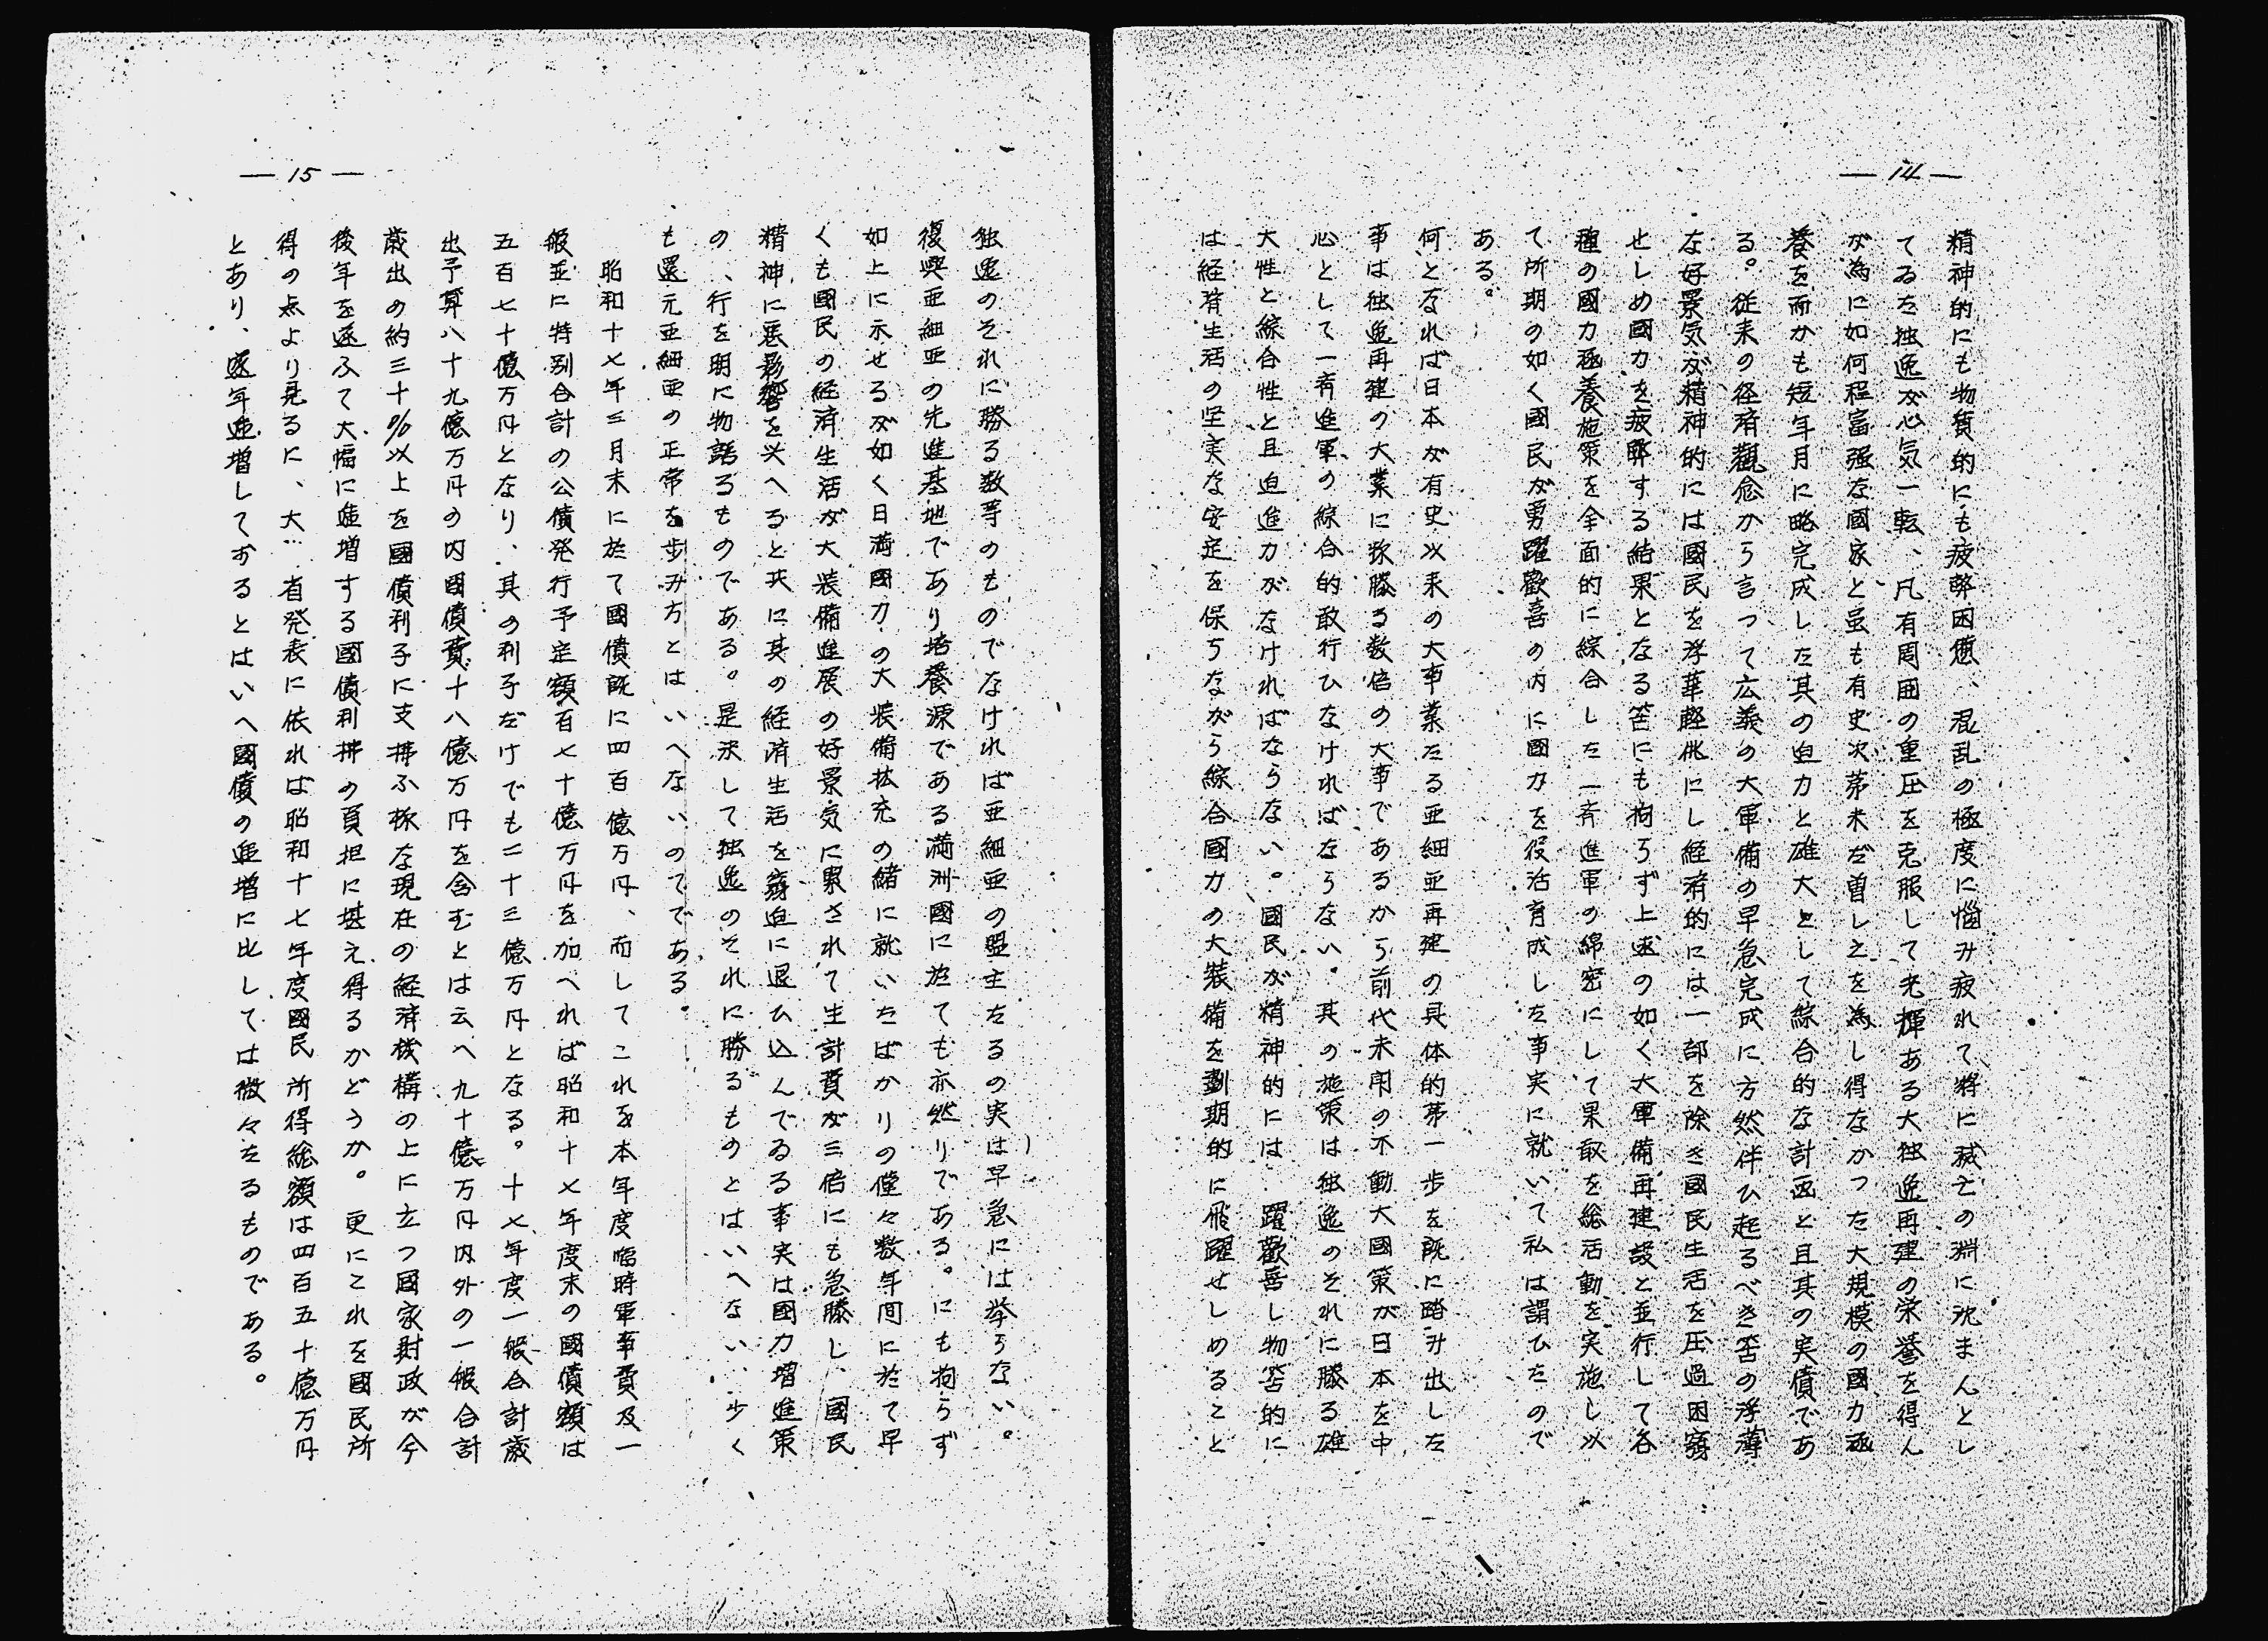 — 14 —
精神的にも物質的にも疲弊困憊、混乱の極度に悩み疲れて将に滅亡の淵に沈まんとし
てゐた独逸が心気一転、凡有周囲の重圧を克服して光輝ある大独逸再建の栄誉を得ん
が為に如何程富强な國家と虽も有史次第未だ曽しとを為し得なかった大規模の國力涵
養を而かも短年月に略完成した其の迫力と雄大として綜合的な計画と且其の実債であ
る。従来の径済觀念から言って広義の大軍備の早急完成に方然伴ひ起るべき筈の浮薄
な好景気が精神的には國民を浮華軽佻にし経済的には一部を除き國民生活を圧迫困窮
せしめ國力を疲弊する結果となる筈にも拘らず上述の如く大軍備再建設と並行して各
種の國力涵養施策を全面的に綜合した一斉進軍の綿密にして果敢を総活動を実施し以
て所期の如く國民が勇躍歡喜の内に國力を復活育成した事実に就いて私は謂ひたので
ある。
何となれば日本が有史以来の大事業たる亜細亜再建の具体的第一歩を既に踏み出した
事は独逸再建の大業に弥勝る数倍の大事であるから前代未聞の不動大國策が日本を中
心として一斉進軍の綜合的敢行ひなければならない。其の施策は独逸のそれに勝る雄
大性と綜合性と且迫進力がなければならない。國民が精神的には 躍歡喜し物質的に
は経済生活の堅実な安定を保ちながら綜合國力の大装備を劃期的に飛躍せしめること
— 15 —
独逸のそれに勝る数等のものでなければ亜細亜の盟主たるの実は早急には挙らない。
復興亜細亜の先進基地であり培養源である満洲國に於ても亦然りである。にも拘らず
如上に示せるが如く日満國力の大装備拡充の緒に就いたばかりの僅々数年間に於て早
くも國民の経済生活が大装備進展の好景気に累されて生計費が三倍にも急騰し、國民
精神に悪影響を与へると共に其の経済生活を窮迫に退ひ込んでゐる事実は國力增進策
の、行を明に物語るものである。是決して独逸のそれに勝るものとはいへない、少く
も還元亜細亜の正常を歩み方とはいへないのてである。
昭和十七年三月末に於て國債既に四百億万円、而してこれを本年度臨時軍事費及一
般並に特別合計の公債発行予定額百七十億万円を加へれば昭和十七年度末の國債額は
五百七十億万円となり、其の利子だけでも二十三億万円となる。十七年度一般合計歳
出予算八十九億万円の内國債費十八億万円を含むとは云へ九十億万円内外の一般合計
歳出の約三十％以上を國債利子に支拂ふ様な現在の経済機構の上に立つ國家財政が今
後年を逐ふて大幅に進増する國債利拂の負担に堪え得るかどうか。更にこれを國民所
得の点より見るに、大 省発表に依れば昭和十七年度國民所得総額は四百五十億万円
とあり、逐年進増しておるとはいへ國債の進增に比しては微々たるものである。